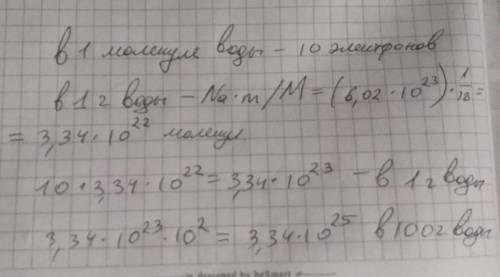 в 1 молекуле воды - 10 электронов
в 1 г воды - Na·m/M = (6,02·10²³)·1/18 =
= 3,34·10²² молекул
10·3,34·10²² = 3,34·10²³ - в 1 г воды
3,34·10²³·10² = 3,34·10²⁵ в 100 г воды
designed by beSmart